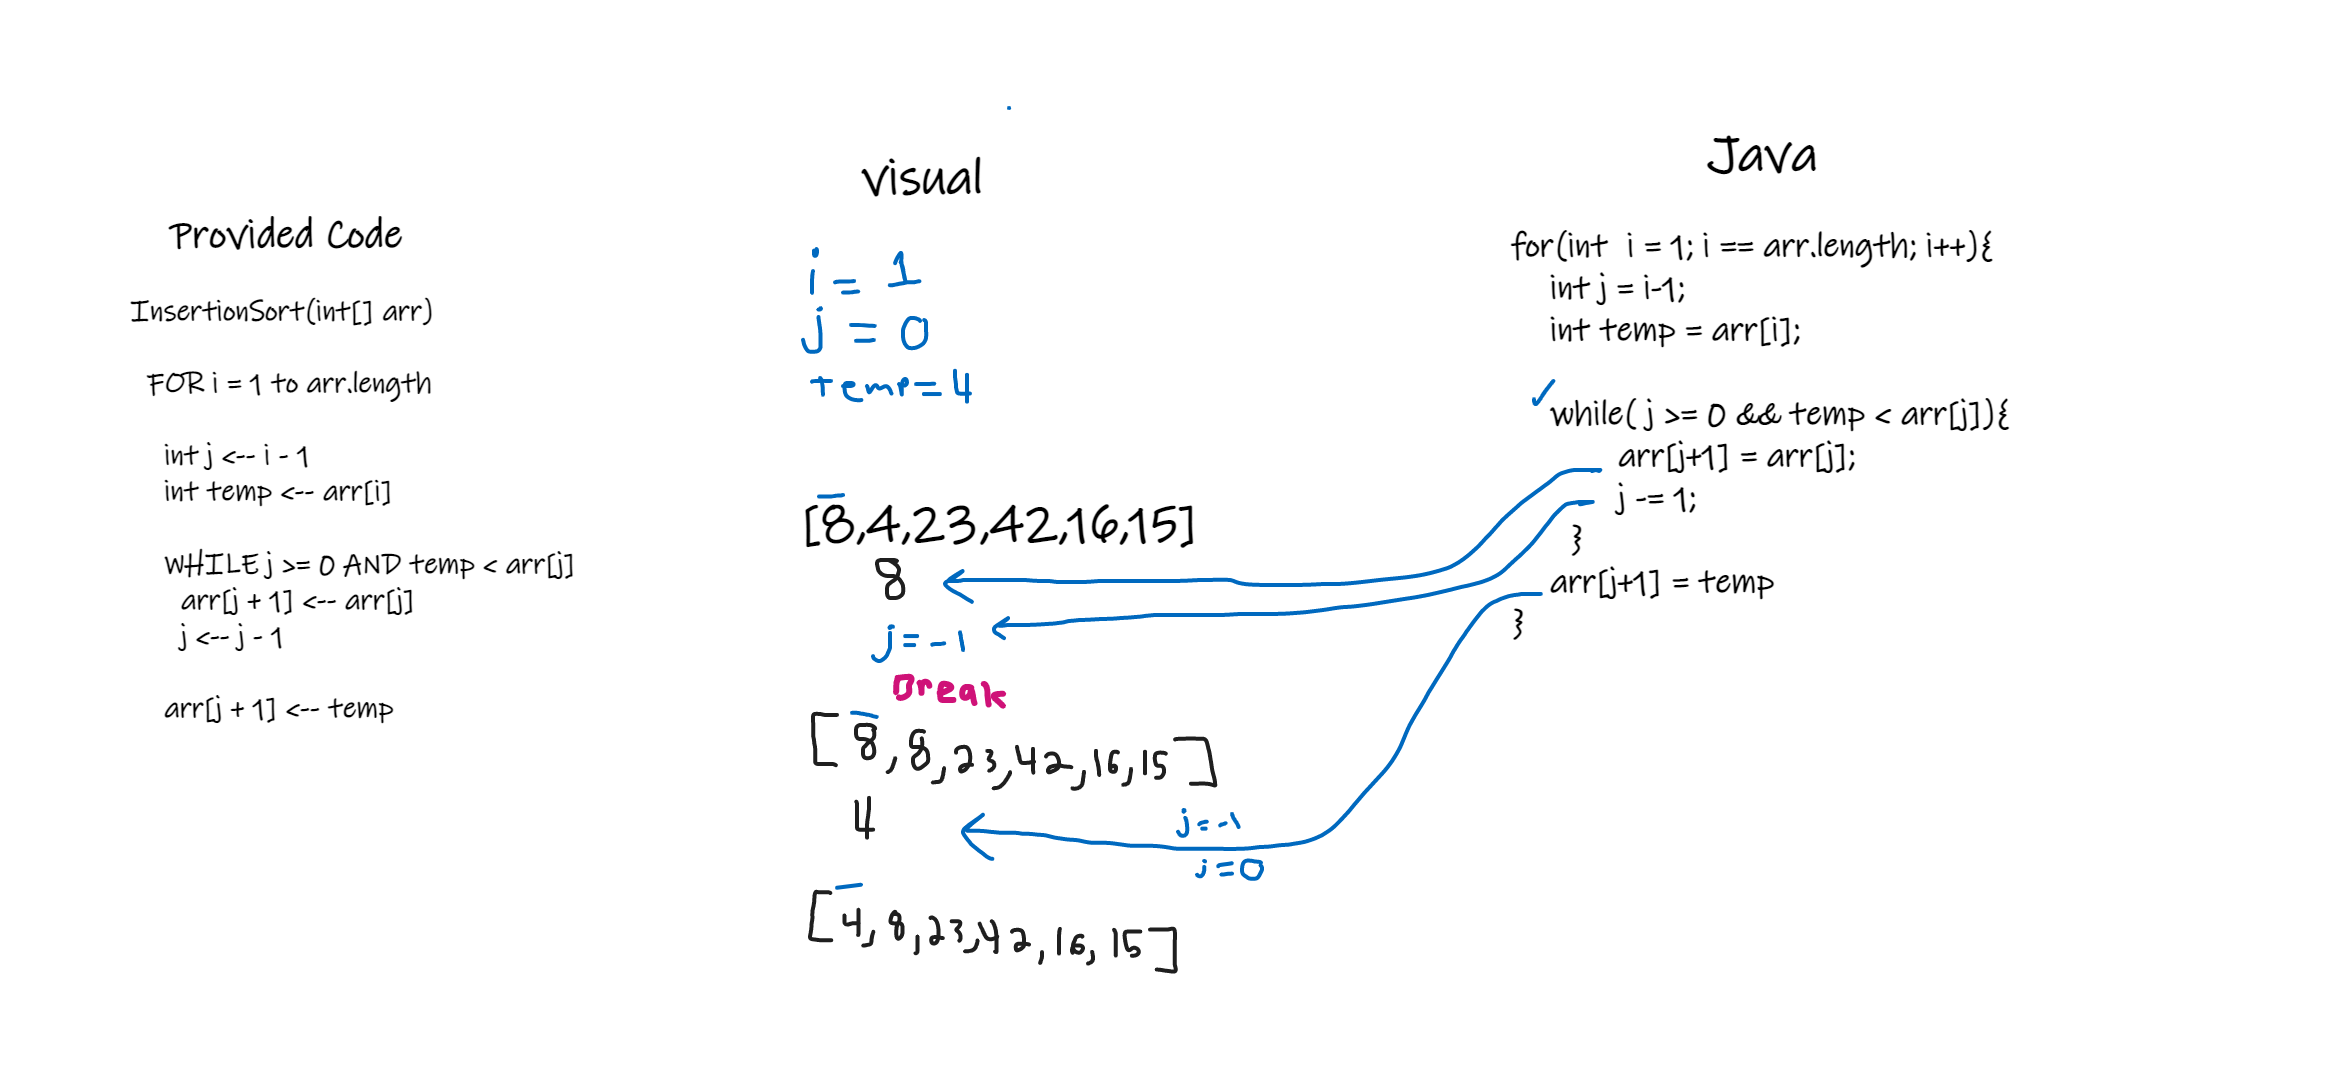 Provided Code
InsertionSort(int[] arr)
FOR i = 1 to arr.length
int j <-- i - 1
int temp <-- arr[i]
WHILE j >= 0 AND temp < arr[j]
arr[j + 1] <-- arr[j]
j <-- j - 1
arr[j + 1] <-- temp
visual
i = 1
j = 0
temp=4
[8,4,23,42,16,15]
8
j=-1
Break
[8,8,23,42,16,15]
4
j=-1
j=0
[4,8,23,42,16,15]
Java
for(int i = 1; i == arr.length; i++){
int j = i-1;
int temp = arr[i];
while( j >= 0 && temp < arr[j]){
arr[j+1] = arr[j];
j -= 1;
}
arr[j+1] = temp
}